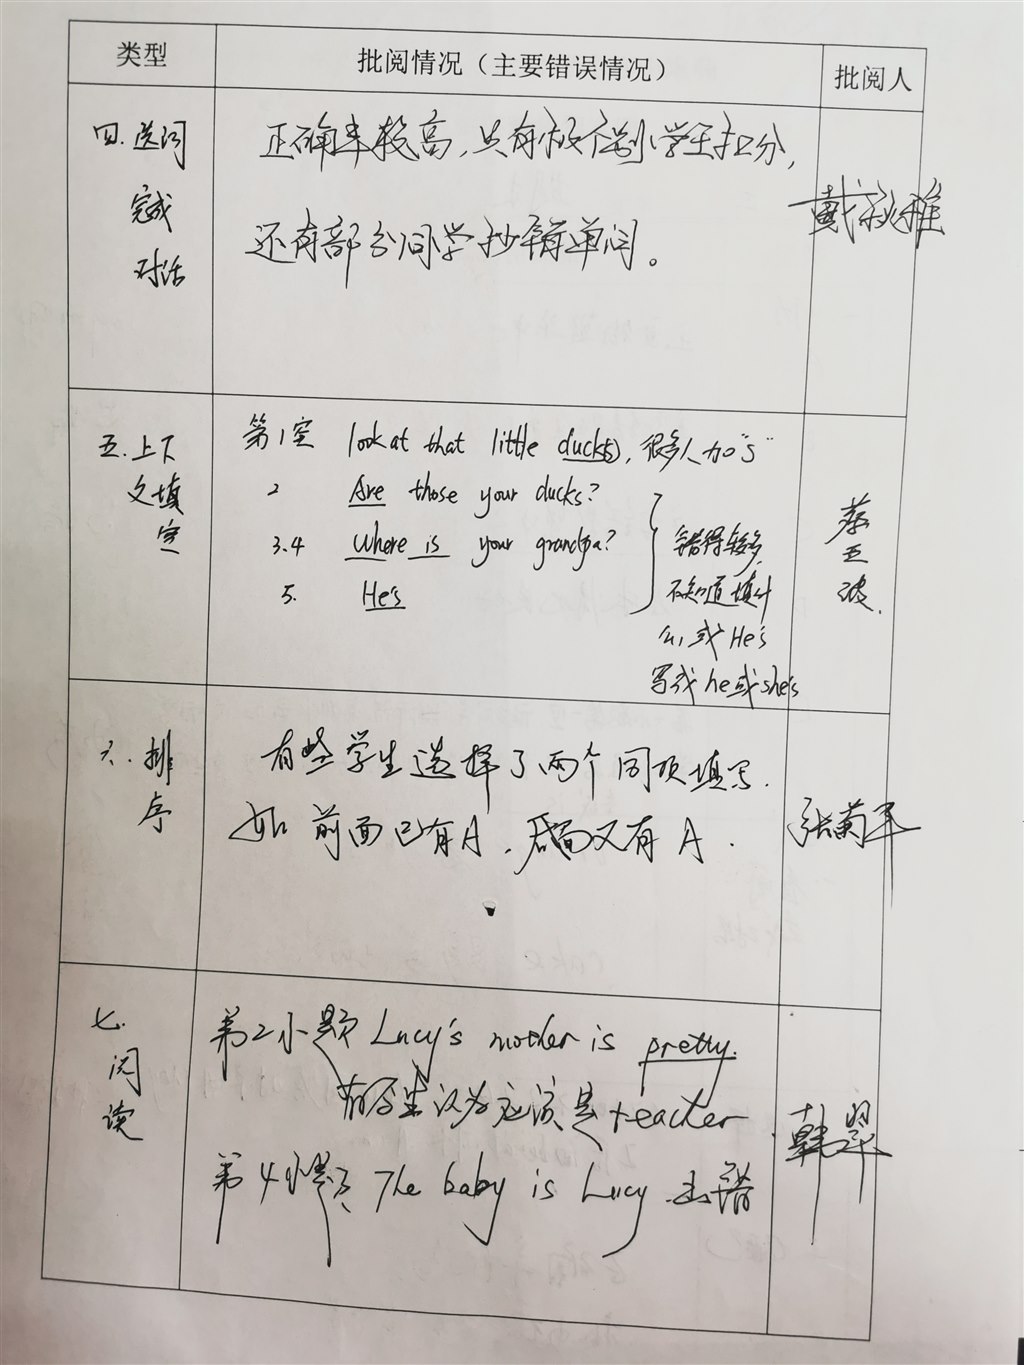 类型
批阅情况（主要错误情况）
批阅人
四.选词
完成
对话
正确率较高,只有极个别小学生扣分,
还有部分同学抄错单词。
戴秋雅
五.上下
文填
空
第1空 look at that little ducks, 很多人加"s"
2 Are those your ducks?
3.4 Where is your grandpa?
5. He's
错得较多,
不知道填什
么,或He's
写成he或she's
蔡
六.排
序
有些学生选择了两个同项填写.
如前面已有A,后面又有A.
张菊平
七.
阅
读
第2小题 Lucy's mother is pretty.
有学生认为应该是teacher
第4小题 The baby is Lucy 出错
韩翠